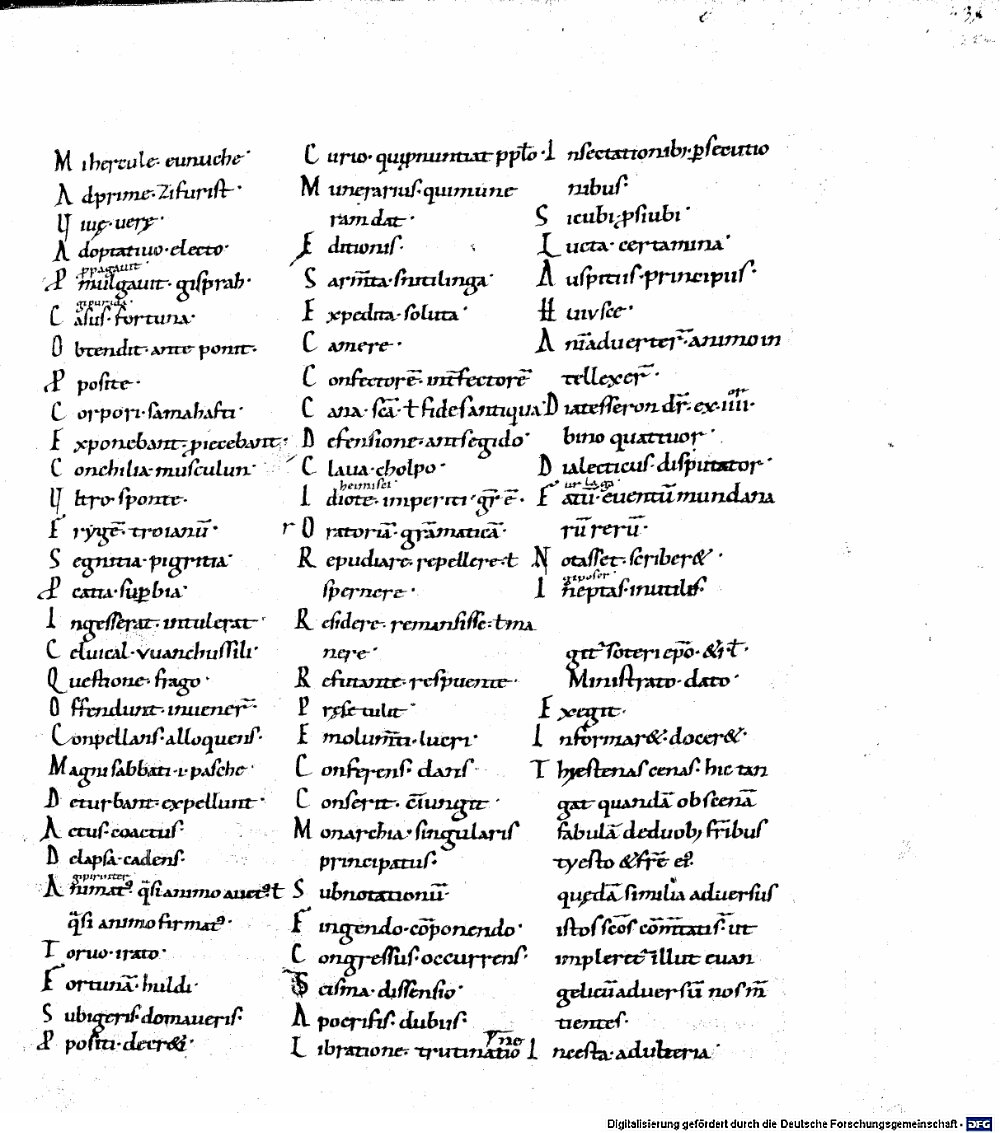 M ihercule· eunuche·
A dprime· Zifurist·
U iuę· uerę·
A doptatiuo· electo·
ppagauit
P mulgauit· gisprah·
giburida
C asus· fortuna·
O btendit· ante ponit·
P posite·
C orpori· samahafti·
E xponebant· piecebant·
C onchilia· musculun·
U ltro· sponte·
F rýgē· troianū·
S egnitia· pigritia·
P catia· supbia·
I ngesserat· intulerat·
C eluical· vuanchussili·
Q uestione· frago·
O ffendunt· inuener̄·
C onpellans· alloquens·
M agni sabbati· i· pasche·
D eturbant· expellunt·
A ctus· coactus·
D elapsa· cadens·
gipiruster
A nimatꝰ· q̄si animo auctꝰ· ł
q̄si animo firmatꝰ·
T oruo· irato·
F ortunā· huldi·
S ubigeris· domaueris·
P positi· decr&i·
C urio· qui pnuntiat ppło·
M unerarius· qui mune
ram dat·
E ditionis·
S arm̄ta· snitilinga·
E xpedita· soluta·
C amere·
C onfectorē· int̄fectorē
C ana· scā· ł fides antiqua
D efensione· antsegido·
C laua· cholpo·
heimisci
I diote· imperiti· gr̄ ē·
r O ratoriā· grāmaticā·
R epudiare· repellere· ł
spernere·
R esidere· remansisse· ł ma
nere·
R efutante· respuente·
P rẹse tulit·
E molum̄ti· lucri·
C onferens· dans
C onserit· c̄iungit·
M onarchia· singularis
principatus·
S ubnotationū·
F ingendo· cōponendo·
C ongressus· occurrens·
S cisma· dissensio·
A pocrifis· dubiis·
L ibratione· trutinatio
ne
I nsectationib;· psecutio
nibus·
S icubi· p siubi·
L ucta· certamina·
A uspitiis· principiis·
H uivsce·
A nīaduerter̄· animo in
tellexer̄·
or
D iatesseron dr̄· ex· iiii·
bino quattuor·
D ialecticus· disputator·
urlaga
F atū· euentū mundana
rū rerū·
N otasset· scriber&·
giposer
I neptas· inutiles·
git̄ soteri ep̄o· &rł·
Ministrato· dato·
E xegit·
I nformar&· docer&·
T hyestenas cenas· hic tan
git quandā obscenā
fabulā de duob; fr̄ibus
tyesto & fr̄e eiꝰ·
quędā similia adversus
istos scōs cōm̄tatis· ut
impleret̄ illut euan
gelicū adversū nos m̄
tientes·
I ncesta· adulteria·
Digitalisierung gefördert durch die Deutsche Forschungsgemeinschaft - DFG